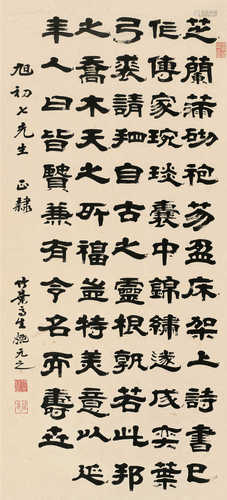 芝蘭滿砌袍笏盈床架上詩書已
作傳家琬琰囊中錦繡遂成奕葉
弓裘請自古之靈根孰若此邦
之喬木天之所福益特美意以延
年人曰皆賢兼有令名而壽
旭初七先生 正隸
竹葉亭生姚元之